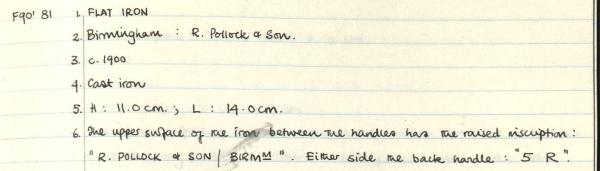 F90' 81 1. FLAT IRON
2. Birmingham : R. Pollock & Son.
3. c. 1900
4. Cast iron
5. H : 11.0 cm. ; L : 14.0 cm.
6. The upper surface of the iron between the handles has the raised inscription :
"R. POLLOCK & SON / BIRMM". Either side the back handle : "5 R".